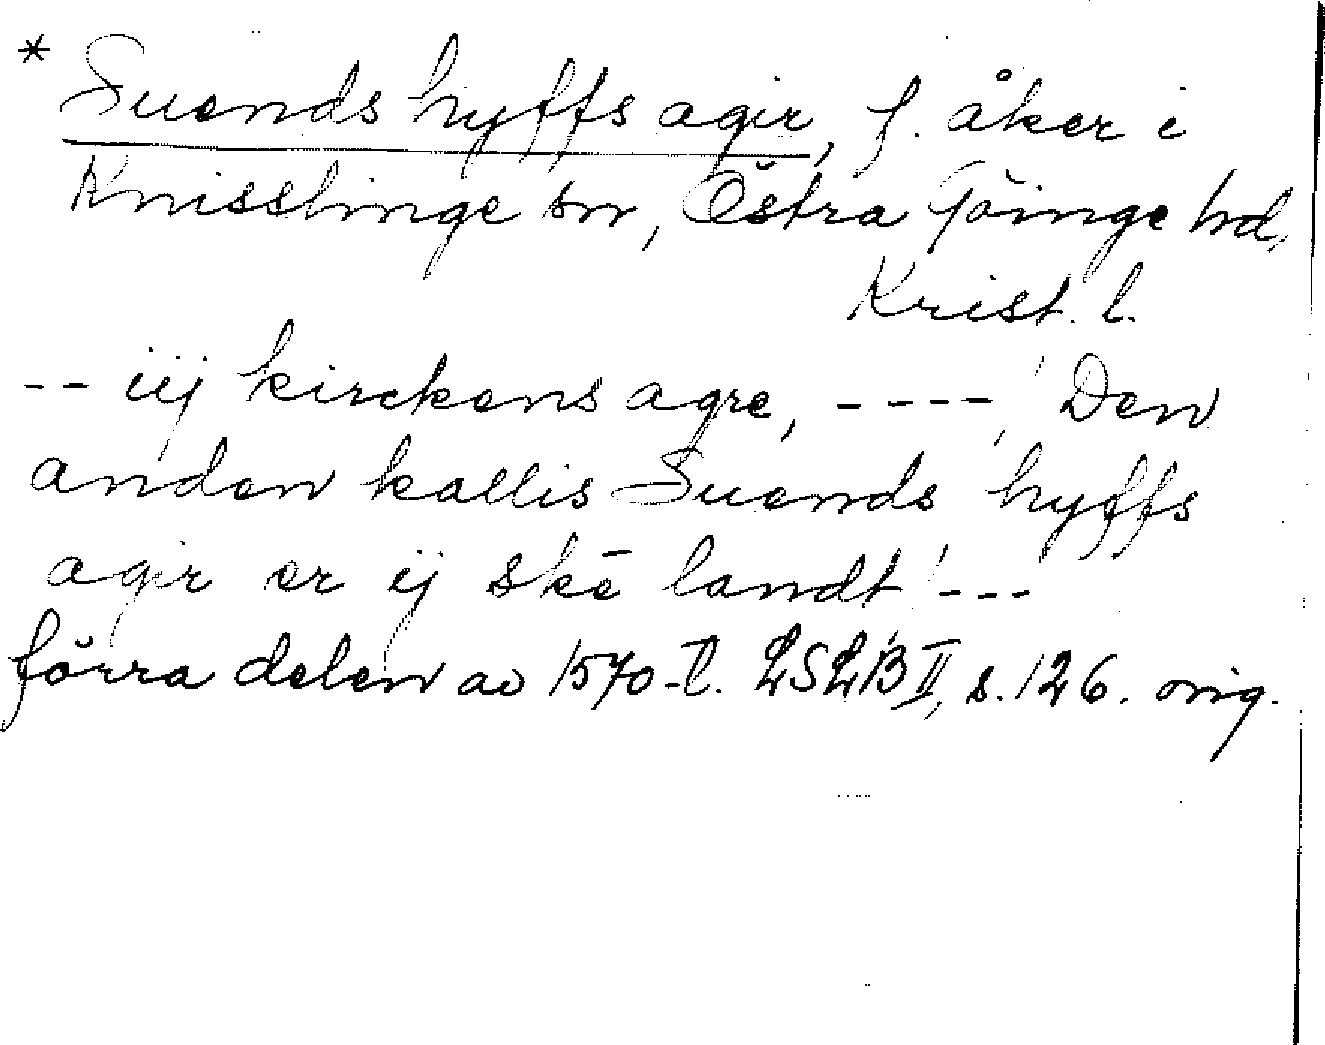 * Suends hyffs agir, f. åker i
Knisslinge sn, Östra Göinge hd,
Krist. l.
-- iij kirckens agre, ----, Den
anden kallis Suends hyffs
agir er ij skē landt' ---
förra delen av 1570-t. LSLB II, s. 126. orig.